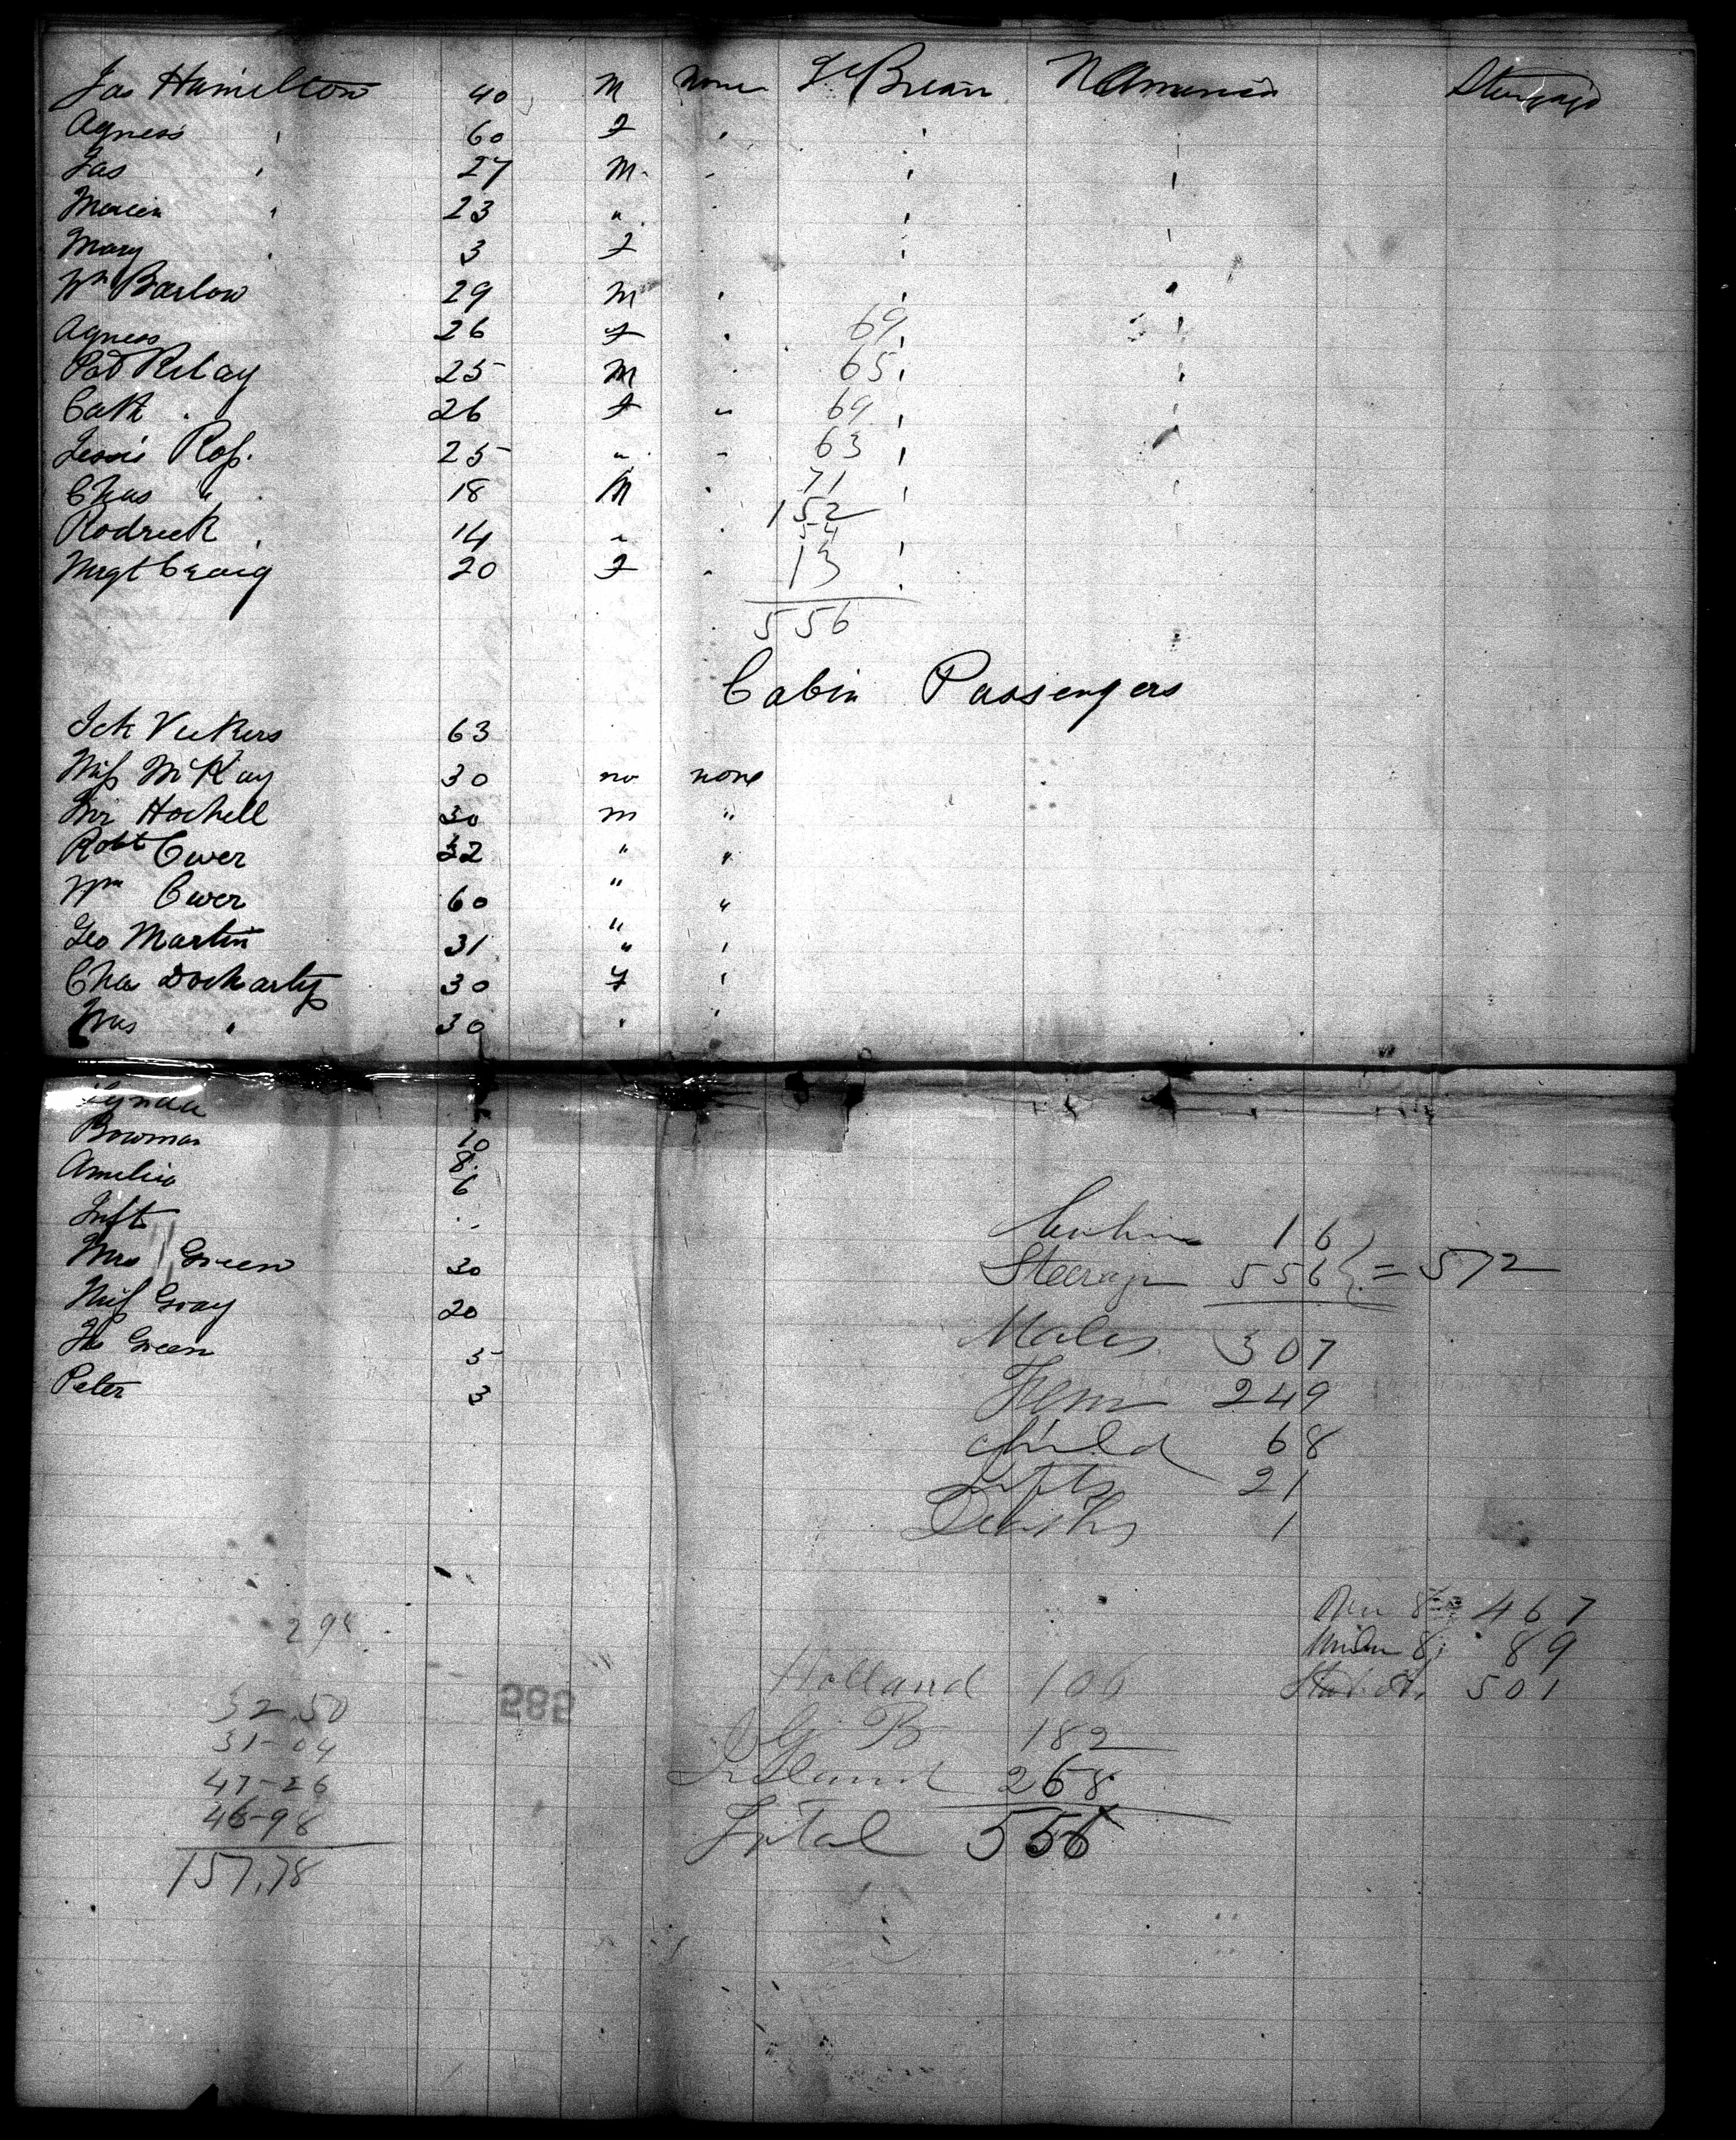 Jas Hamilton 40 M none Gt Britain N America Steerage
Agness " 60 F "
Jas " 27 M "
23 "
Mary " 3 F "
Wm Barlow 29 M "
Agness 26 F " 69
Pat Rilay 25 M " 65
Cath " 26 F " 69
Jessie Ross 25 " " 63
Chas " 18 M " 71
152
Rodrick " 14 " " 54
Mrgt Craig 20 F " 13
556
Cabin Passengers
Vickers 63
Miss McKay 30 no none
Mr Hochell 30 m "
Robt Ower 32 " "
Wm Ower 60 " "
Geo Martin 31 " "
Chas Docharty 30 F "
Mrs " 30 " "
Bowman 10
Amelia 8
6
Inft
Mrs Green 30
Miss Gray 20
Jas Green 5
Peter 3
Cabin 16
Steerage 556 } = 572
Males 307
Fem 249
Child 68
Infts 21
Deaths 1
Over 8 467
Under 8 89
Stat. ad. 501
298
Holland 106
G B 182
Ireland 268
Total 556
585
32-50
31-04
47-26
46-98
157.78